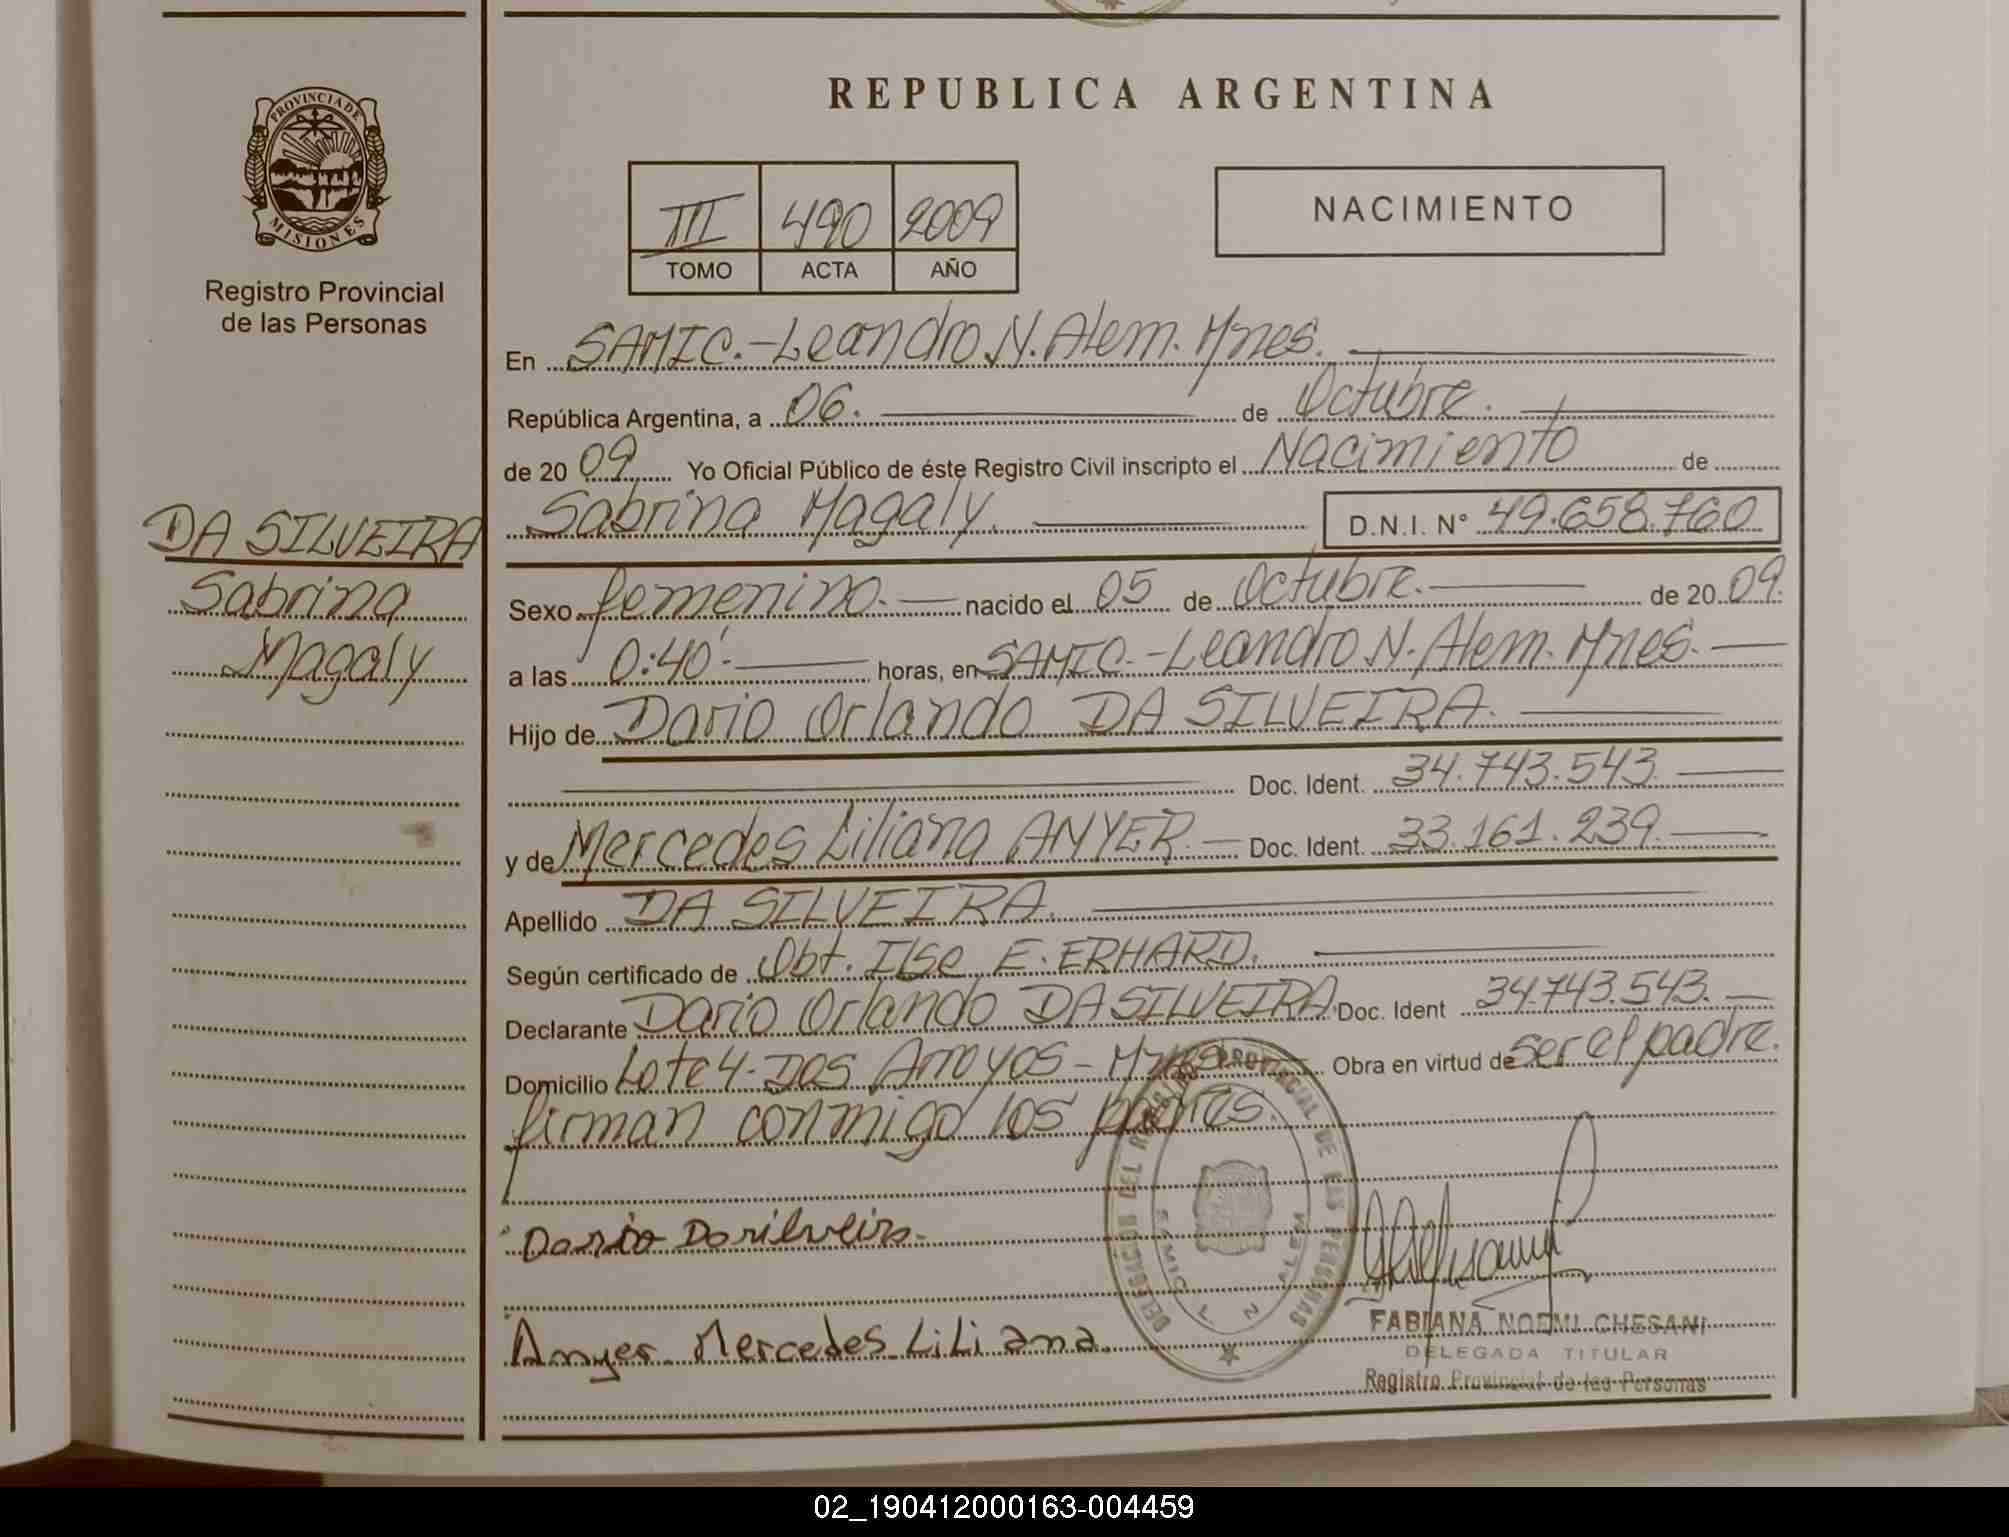 REPUBLICA ARGENTINA
PROVINCIA DE MISIONES
Registro Provincial
de las Personas
III 490 2009
TOMO ACTA AÑO
NACIMIENTO
DA SILVEIRA
Sabrina
Magaly
En SAMIC.-Leandro N. Alem. Mnes.
República Argentina, a 06. de Octubre.
de 2009 Yo Oficial Público de éste Registro Civil inscripto el Nacimiento de
Sabrina Magaly. D.N.I. N° 49.658.760
Sexo femenino. nacido el 05 de Octubre. de 2009.
a las 0:40'. horas, en SAMIC.-Leandro N. Alem. Mnes.
Hijo de Dario Orlando DA SILVEIRA.
Doc. Ident. 34.743.543.
y de Mercedes Liliana ANYER. Doc. Ident. 33.161.239.
Apellido DA SILVEIRA.
Según certificado de Obt. Ilse E. ERHARD.
Declarante Dario Orlando DA SILVEIRA. Doc. Ident 34.743.543.
Domicilio Lote 4-Dos Arroyos-Mnes. Obra en virtud de ser el padre.
firman conmigo los padres.
Dario Dasilveira.
Anyer Mercedes Liliana.
DELEGACION DEL REGISTRO PROVINCIAL DE LAS PERSONAS
SAMIC L N ALEM
FABIANA NOEMI CHESANI
DELEGADA TITULAR
Registro Provincial de las Personas
02_190412000163-004459